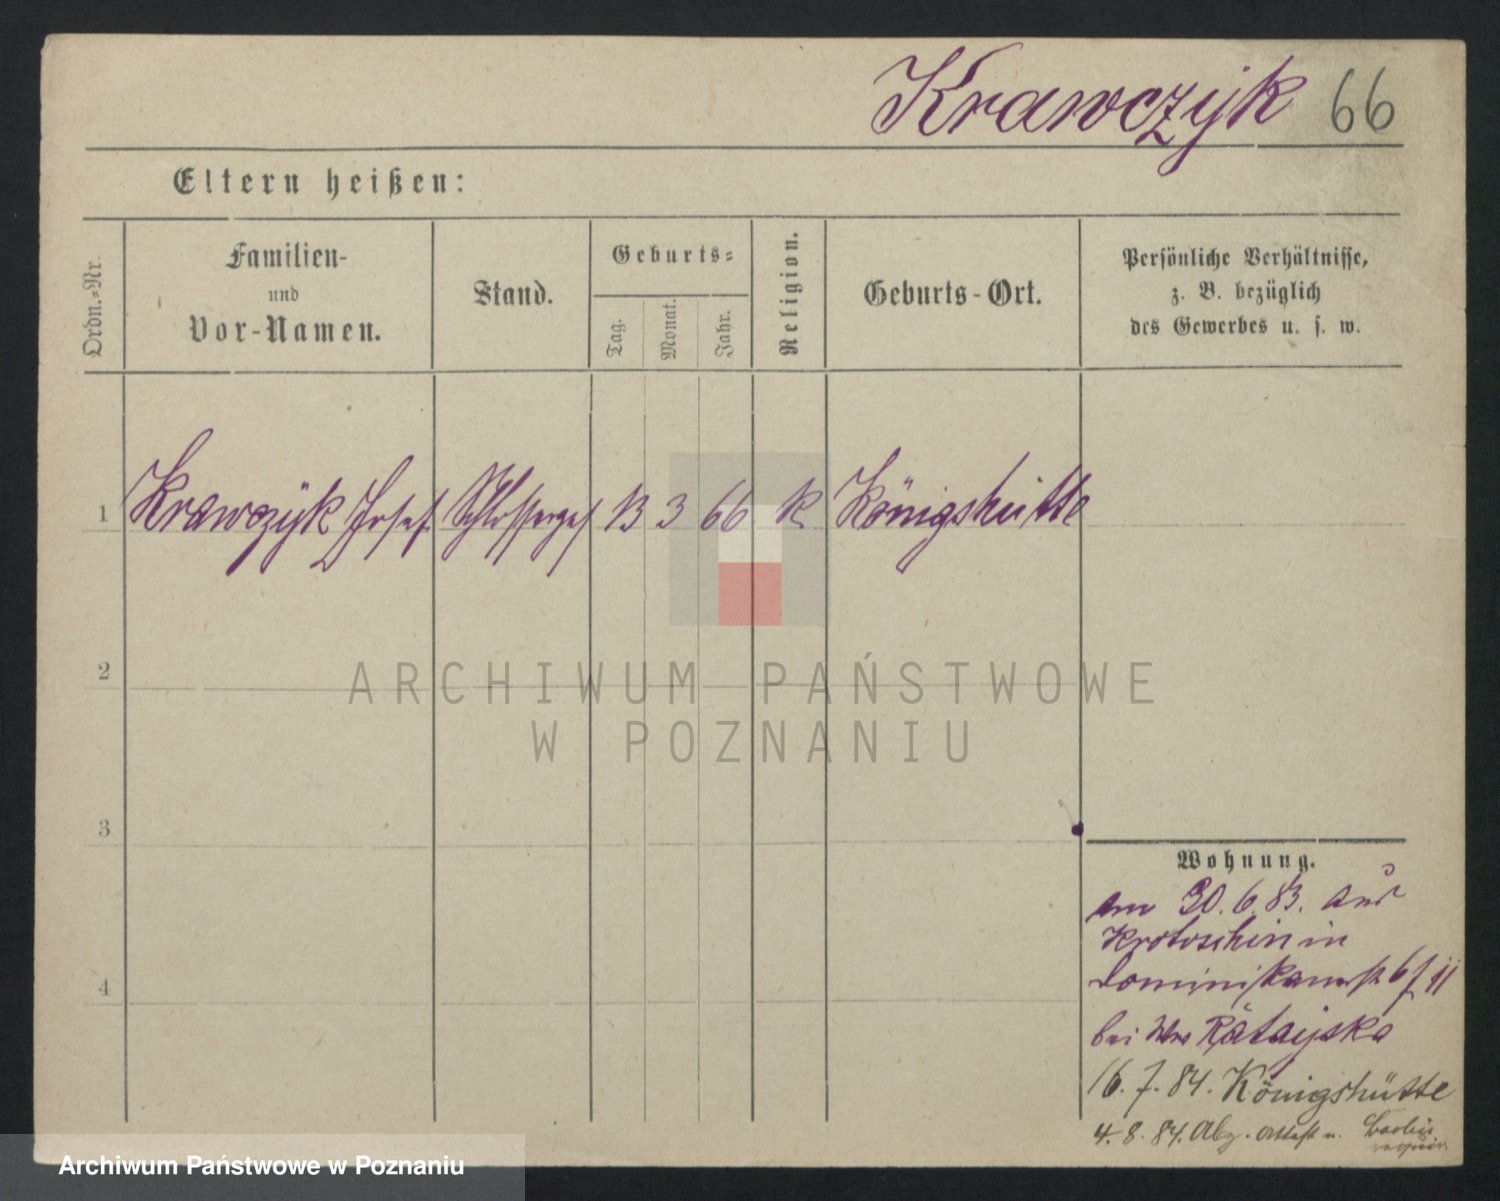 Krawczyk 66
Eltern heißen:
Ordn.=Nr.
Familien-
und
Vor-Namen.
Stand.
Geburts=
Tag.
Monat.
Jahr.
Religion.
Geburts-Ort.
Persönliche Verhältnisse,
z. B. bezüglich
des Gewerbes u. s. w.
1 Krawczyk Josef Schlosserges 13 3 66 K Königshütte
2
ARCHIWUM PAŃSTWOWE
W POZNANIU
3
4
Wohnung.
am 30.6.83. aus
Krotoschin in
Dominikanerstr 6
bei Wwe Ratayska
16.7.84. Königshütte
4.8.84. Abg. Attest n.
Archiwum Państwowe w Poznaniu